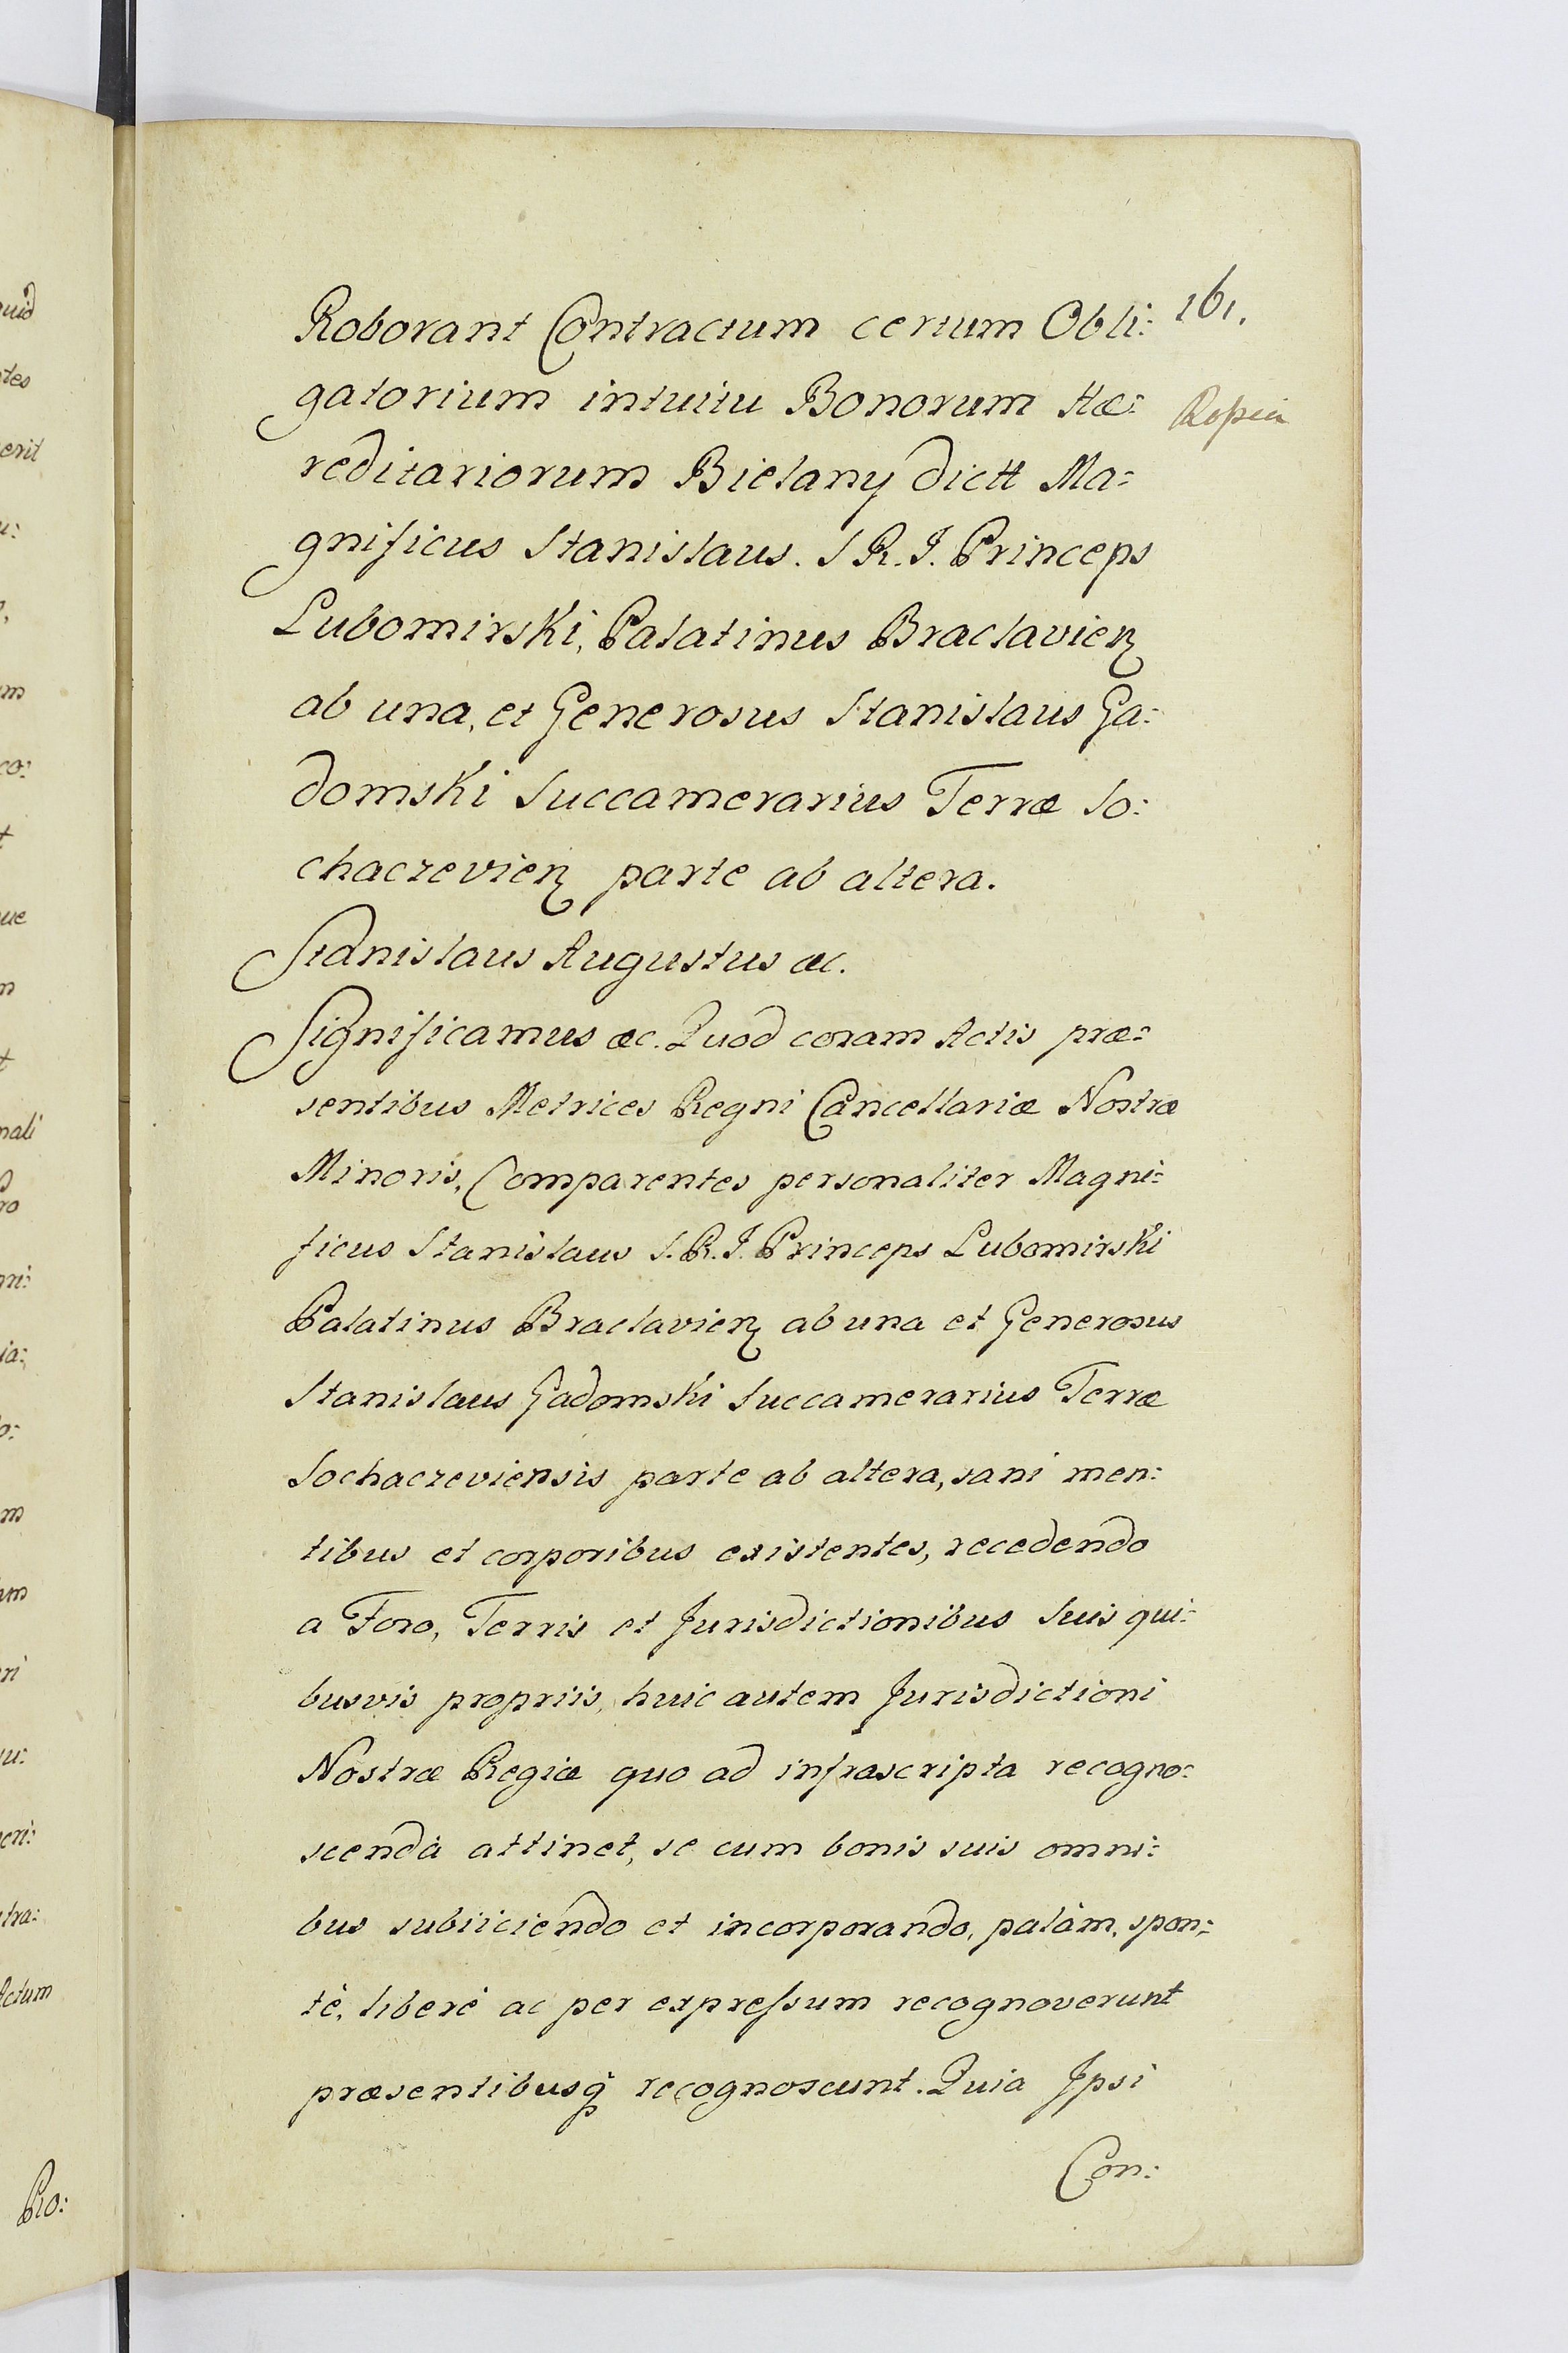 161.
Roborant Contractum certum Obli:
gatorium intuitu Bonorum Hæ:
reditariorum Bielany dictt Ma:
gnificus Stanislaus. S R. J. Princeps
Lubomirski, Palatinus Braclavien
ab una, et Generosus Stanislaus Ga:
domski Succamerarius Terræ So:
chaczevien parte ab altera.
Stanislaus Augustus æc.
Significamus æc. Quod coram Actis præ:
sentibus Metrices Regni Cancellariæ Nostræ
Minoris, Comparentes personaliter Magni:
ficus Stanislaus S. R. J. Princeps Lubomirski
Palatinus Braclavien ab una et Generosus
Stanislaus Gadomski Succamerarius Terræ
Sochaczeviensis parte ab altera, sani men:
tibus et corporibus existentes, recedendo
a Foro, Terris et Jurisdictionibus Suis qui:
busvis propriis, huic autem Jurisdictioni
Nostræ Regiæ quo ad infrascripta recogno:
scenda attinet, se cum bonis suis omni:
bus subiiciendo et incorporando, palàm, spon:
tè, liberè ac per expreſsum recognoverunt
præsentibusq recognoscunt. Quia Jpsi
Con: